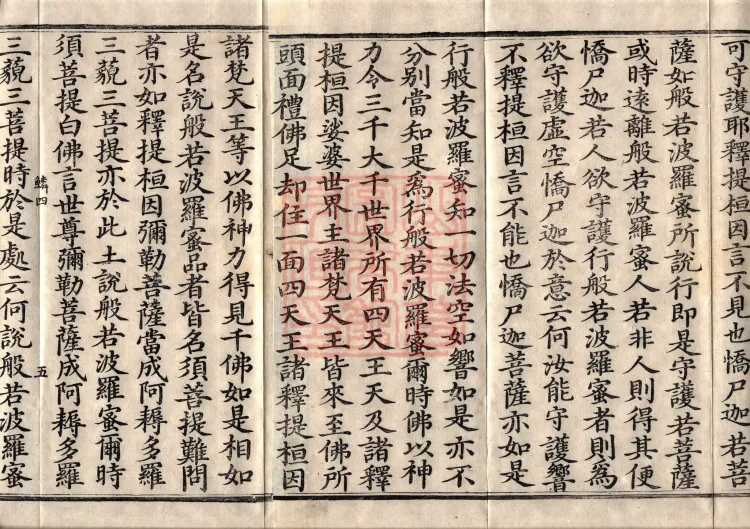 可守護耶釋提桓因言不見也憍尸迦若菩
薩如般若波羅蜜所說行即是守護若菩薩
或時遠離般若波羅蜜人若非人則得其便
憍尸迦若人欲守護行般若波羅蜜者則為
欲守護虛空憍尸迦於意云何汝能守護響
不釋提桓因言不能也憍尸迦菩薩亦如是
行般若波羅蜜知一切法空如響如是亦不
分別當知是為行般若波羅蜜爾時佛以神
力令三千大千世界所有四天王天及諸釋
提桓因娑婆世界主諸梵天王皆來至佛所
頭面禮佛足却住一面四天王諸釋提桓因
諸梵天王等以佛神力得見千佛如是相如
是名說般若波羅蜜品者皆名須菩提難問
者亦如釋提桓因彌勒菩薩當成阿耨多羅
三藐三菩提亦於此土說般若波羅蜜爾時
須菩提白佛言世尊彌勒菩薩成阿耨多羅
鱗四 五
三藐三菩提時於是處云何說般若波羅蜜